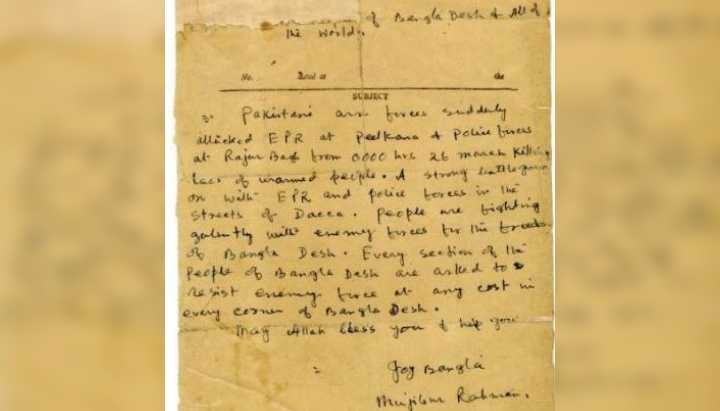 of Bangla Desh & All of
the world.
No. Dated at the
SUBJECT
Pakistani arm forces suddenly
attacked EPR at Peelkana & Police forces
at Rajar Bag from 0000 hrs 26 march killing
lacs of unarmed people. A strong battle going
on with EPR and police forces in the
streets of Dacca. People are fighting
galently with enemy forces for the freedom
of Bangla Desh. Every section of the
people of Bangla Desh are asked to
resist enemy force at any cost in
every corner of Bangla Desh.
May Allah bless you & help you
Joy Bangla
Mujibur Rahman.